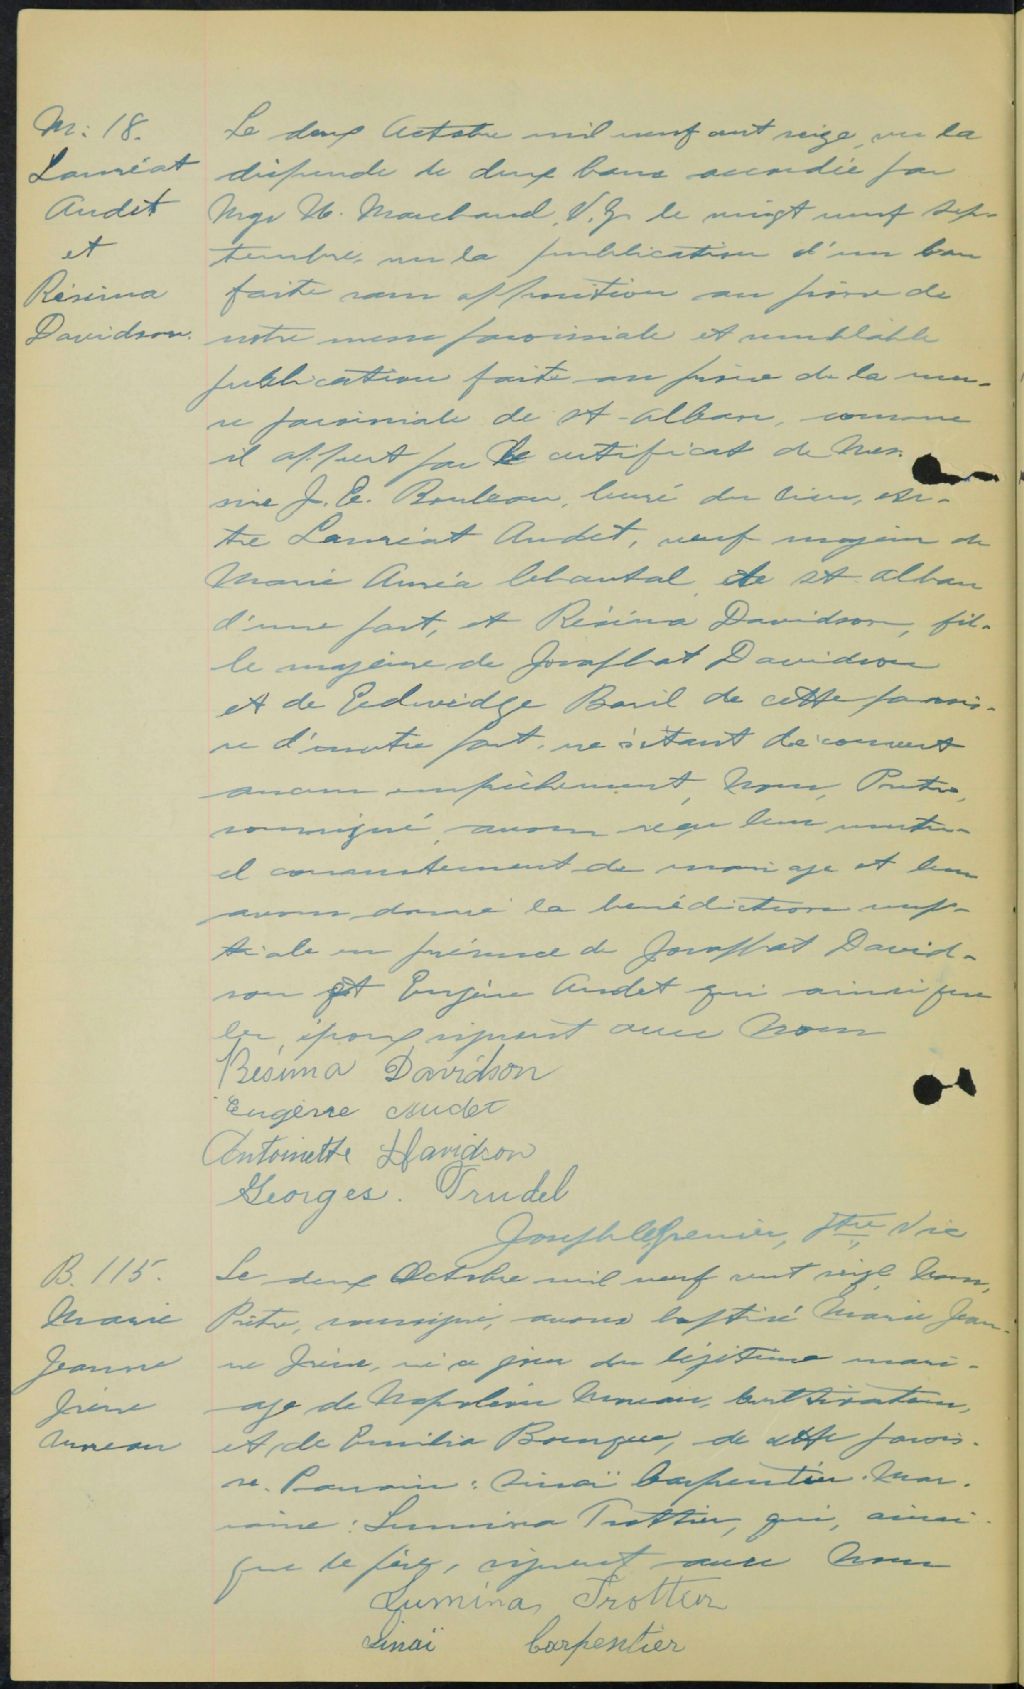 M. 18.
Lauréat
Audet
et
Résima
Davidson.
Le deux Octobre mil neuf cent seize, vu la
dispende de deux bans accordée par
Mgr U. Marchand, V. G. le vingt neuf sep-
tembre, vu la publication d'un ban
faite sans opposition au prône de
notre messe paroissiale et semblable
publication faite au prône de la mes-
se paroissiale de St-Alban, comme
il appert par le certificat de Mes-
sire J. E. Rouleau, curé du lieu, en-
tre Lauréat Audet, veuf majeur de
Marie Auréa de St Alban
d'une part, et Résima Davidson, fil-
le majeure de Josaphat Davidson
et de Edwidge Baril de cette parois-
se d'autre part, ne s'étant découvert
aucun empêchement, Nous, Prêtre,
soussigné, avons reçu leur mutu-
el consentement de mariage et leur
avons donné la bénédiction nup-
tiale en présence de Josaphat David-
son et Eugène Audet qui ainsi que
les époux signent avec Nous
Résima Davidson
Eugène Audet
Antoinette Davidson
Georges. Trudel
Joseph Grenier, Ptre, Vic
B. 115.
Marie
Jeanne
Irène
Juneau
Le deux Octobre mil neuf cent seize, Nous,
Prêtre, soussigné, avons baptisé Marie Jean-
ne Irène, née ce jour du légitime mari-
age de Napoléon Juneau, cultivateur,
et de Emilia Bourque, de cette parois-
se. Parrain : Sinaï Carpentier. Mar-
raine : Lumina Trottier, qui, ainsi
que le père, signent avec Nous
Lumina Trottier
Sinaï Carpentier